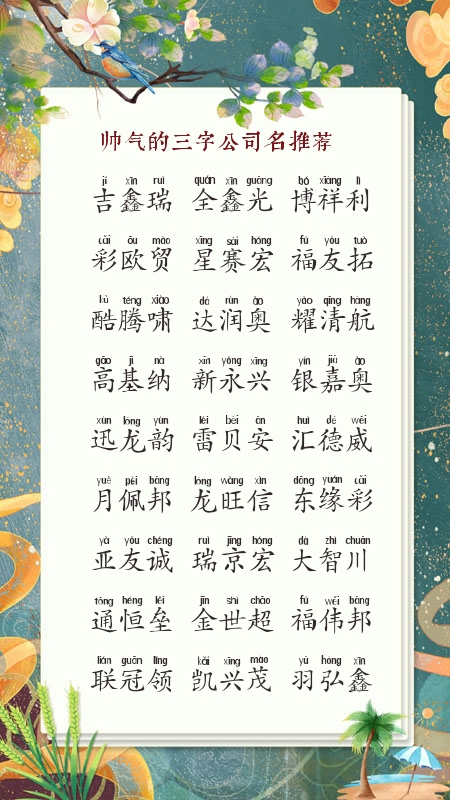 帅气的三字公司名推荐
jí xīn ruì quán xīn guāng bó xiáng lì
吉鑫瑞 全鑫光 博祥利
cǎi ōu mào xīng sài hóng fú yǒu tuò
彩欧贸 星赛宏 福友拓
kù téng xiào dá rùn ào yào qīng háng
酷腾啸 达润奥 耀清航
gāo jī nà xīn yǒng xīng yín jiā ào
高基纳 新永兴 银嘉奥
xùn lóng yùn léi bèi ān huì dé wēi
迅龙韵 雷贝安 汇德威
yuè pèi bāng lóng wàng xìn dōng yuán cǎi
月佩邦 龙旺信 东缘彩
yà yǒu chéng ruì jīng hóng dà zhì chuān
亚友诚 瑞京宏 大智川
tōng héng lěi jīn shì chāo fú wěi bāng
通恒垒 金世超 福伟邦
lián guān lǐng kǎi xīng mào yǔ hóng xīn
联冠领 凯兴茂 羽弘鑫